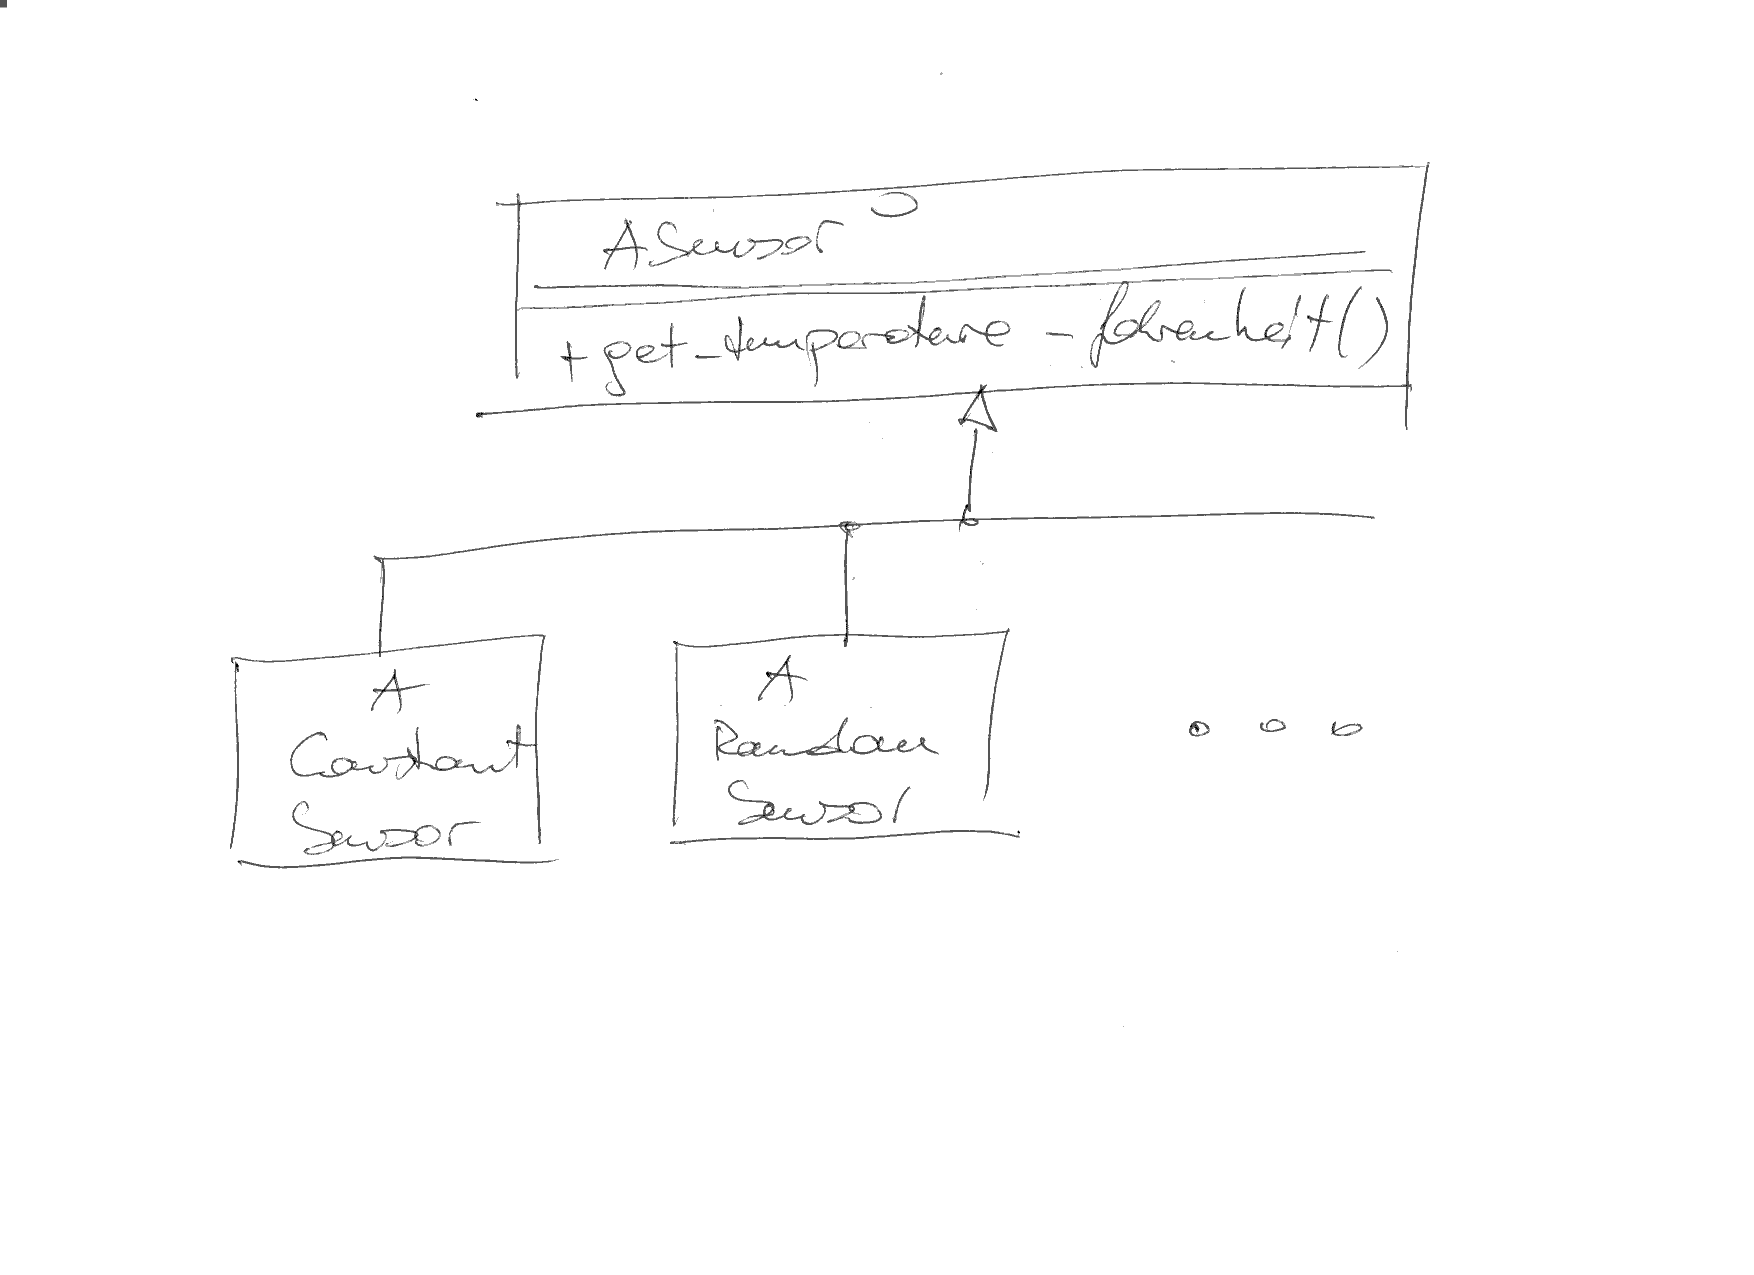 A Sensor
+ get_temperature_fahrenheit()
A
Constant
Sensor
A
Random
Sensor